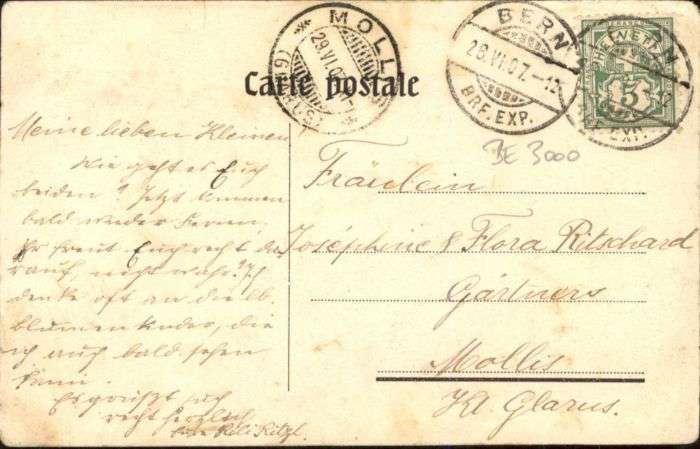 Carte postale
MOLLIS
29.VI.07
(GLARUS)
BERN
28.VI.07.-12
BRF. EXP.
HELVETIA
5
BE 3000
Meine lieben Kleinen
Wie geht es Euch
beiden? Jetzt kommen
bald wieder Ferien,
Ihr freut Euch recht da-
rauf, nicht wahr? Ich
denke oft an die lb.
Blumenkinder, die
ich auch bald sehen
kann.
Es grüsst Euch
recht herzlich
Fräulein
Joséphine & Flora Ritschard
Gärtners
Mollis
Kt. Glarus.